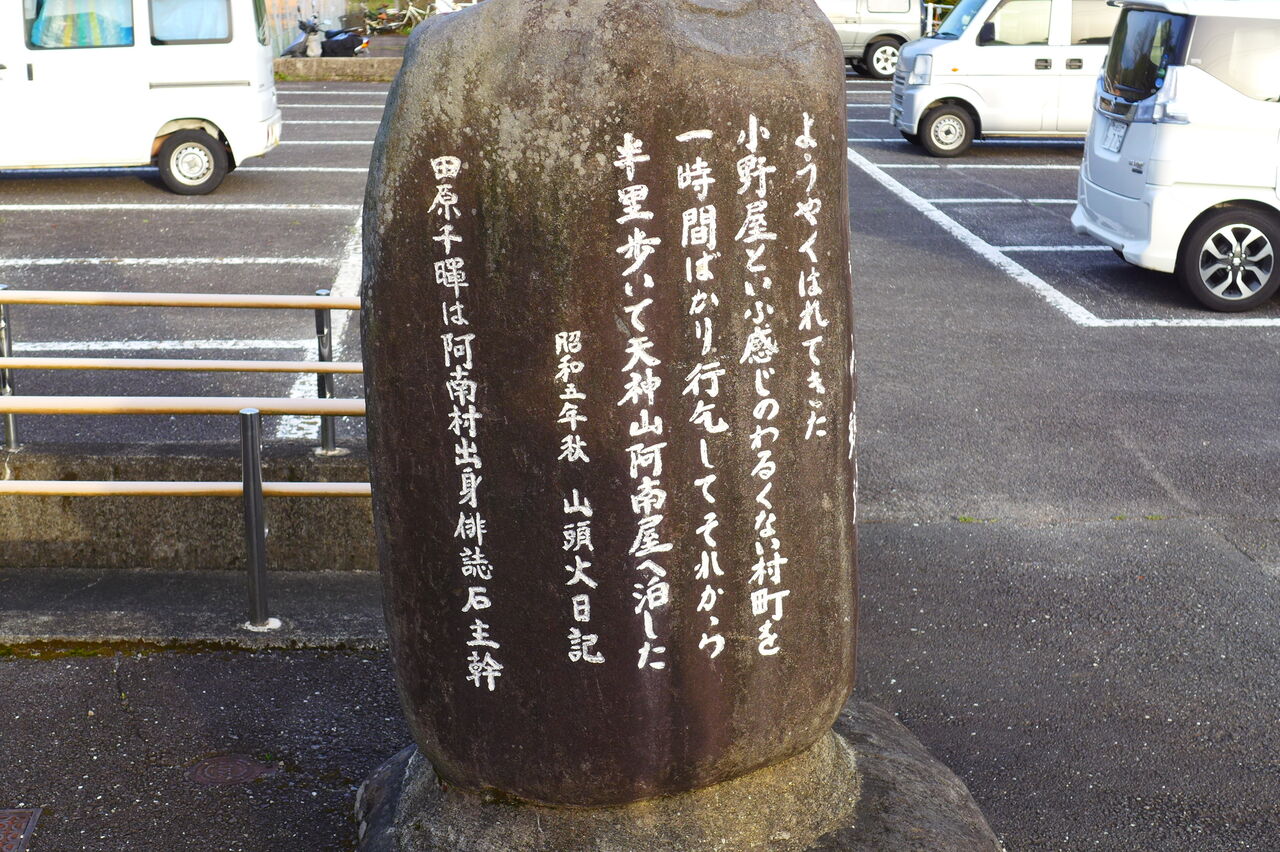 ようやくはれてきた
小野屋といふ感じのわるくない村町を
一時間ばかり行乞してそれから
半里歩いて天神山阿南屋へ泊した
昭和五年秋　山頭火日記
田原千暉は阿南村出身俳誌石主幹